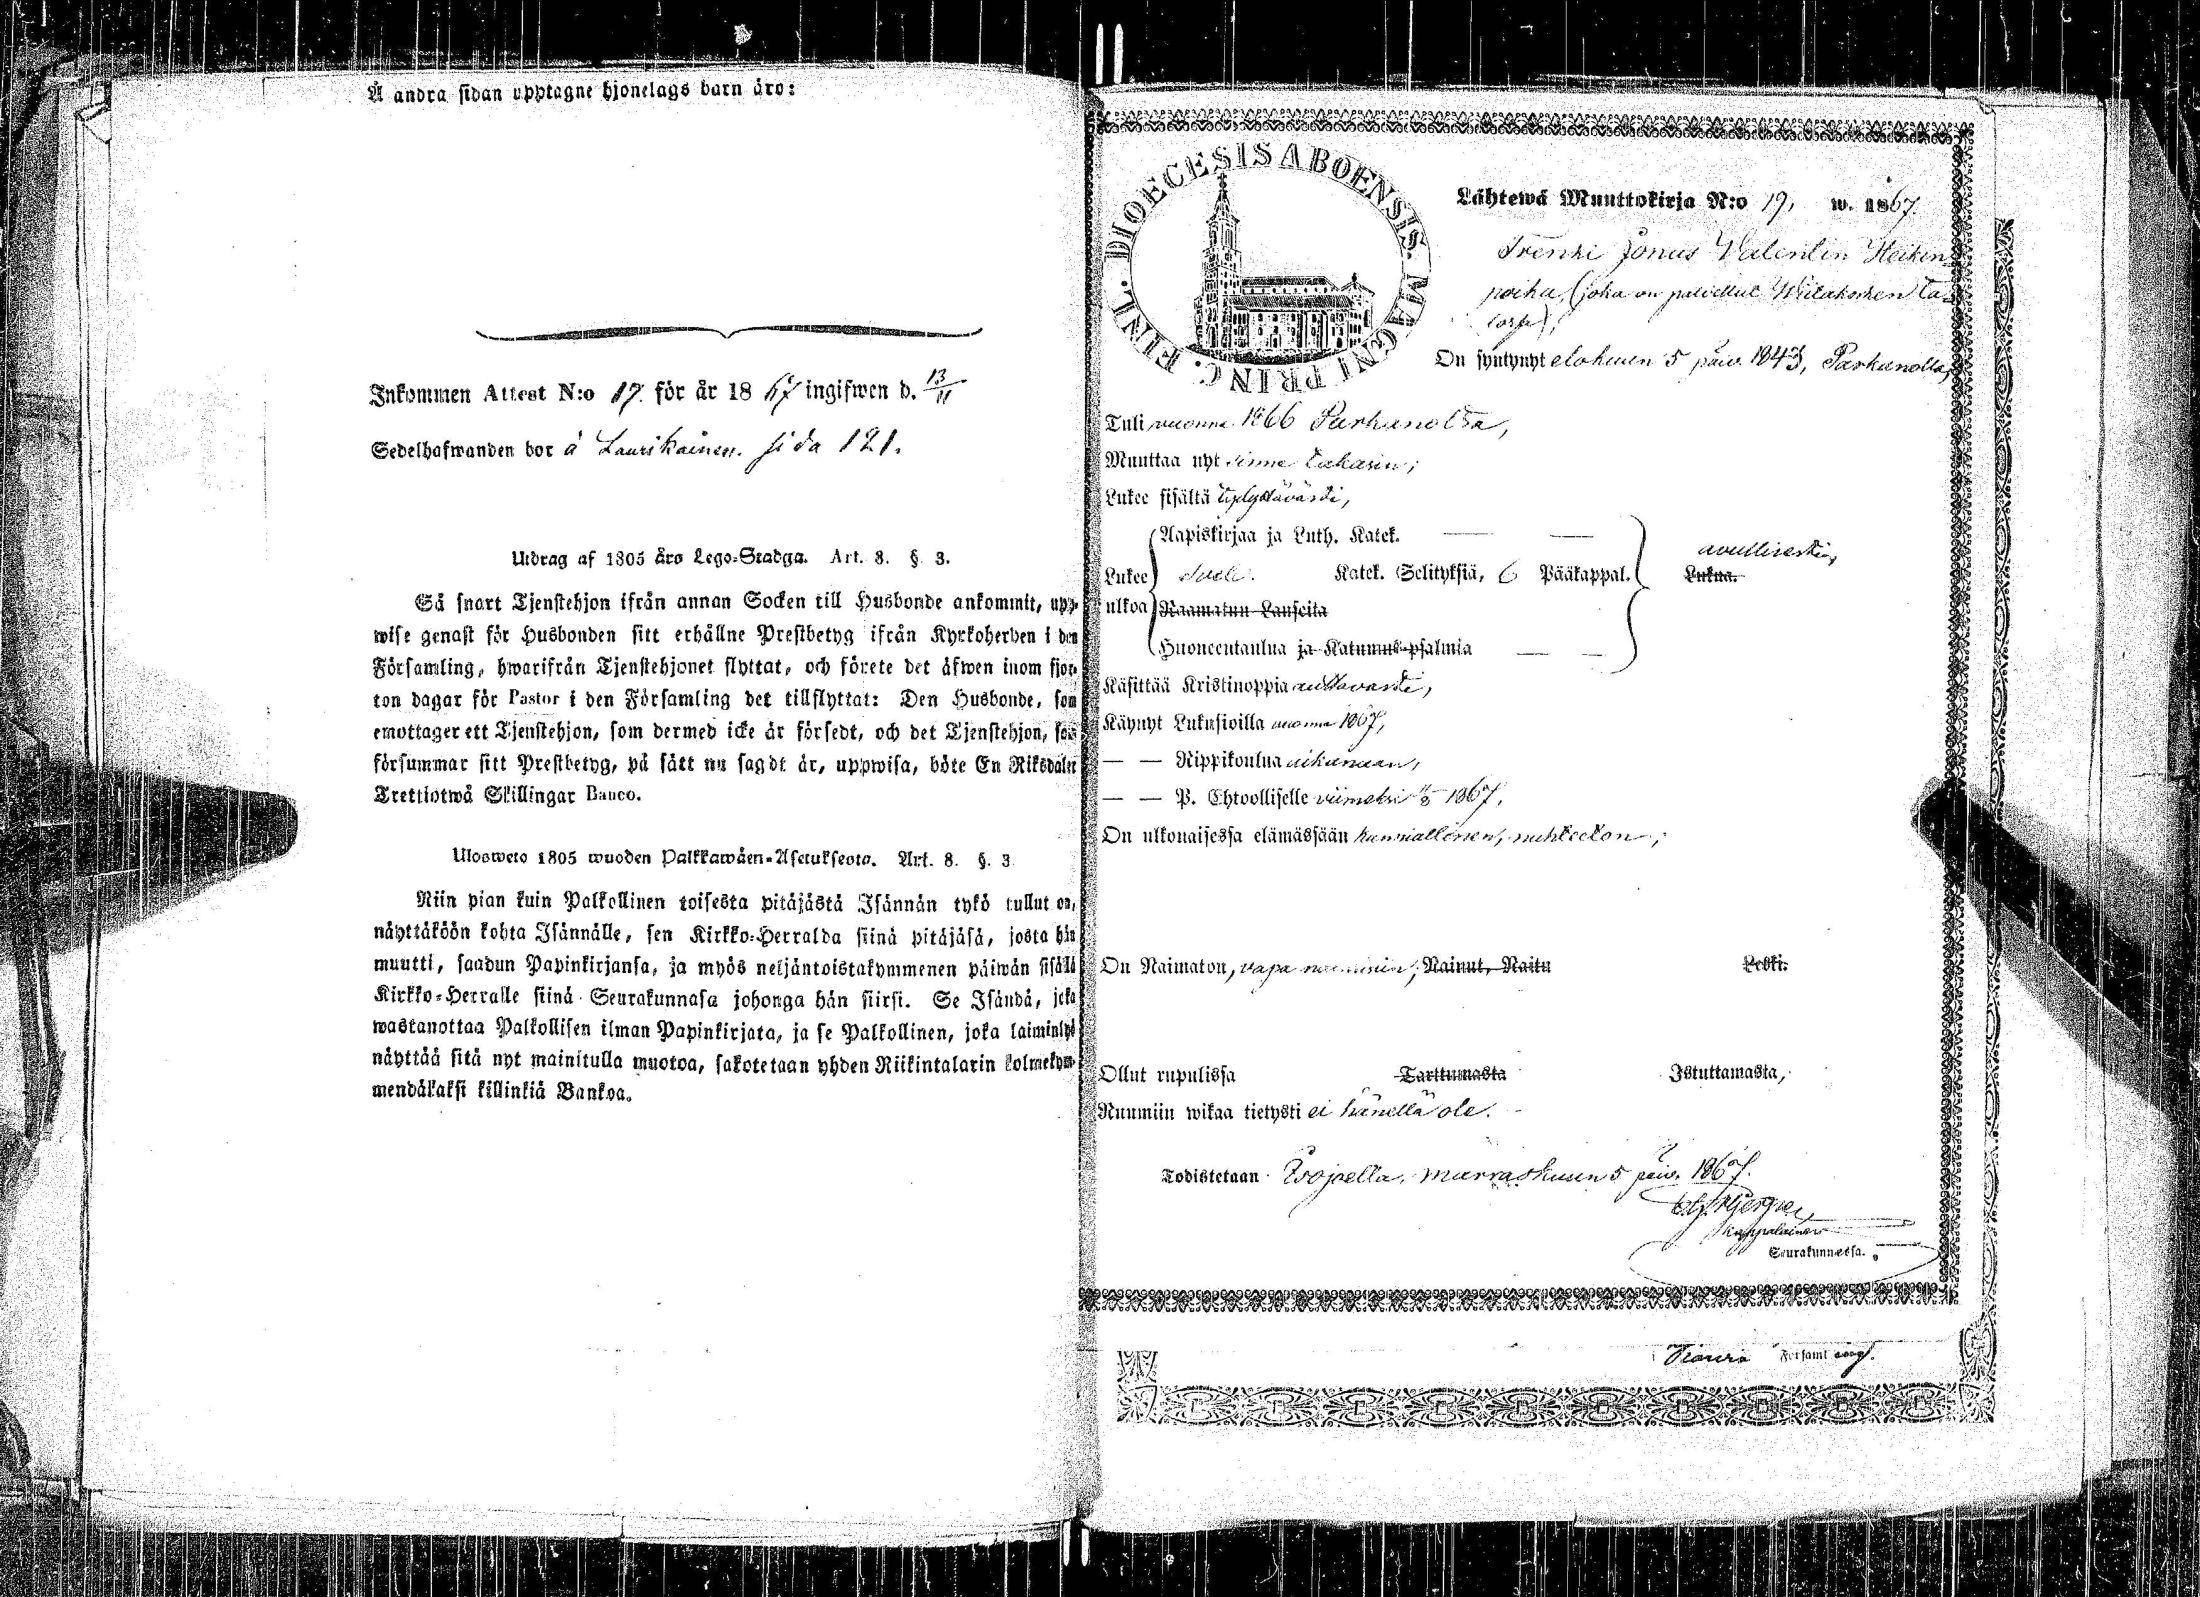 Å andra sidan upptagne hjonelags barn äro:
Inkommen Attest N:o 17. för år 1867 ingifwen d. 13/11
Sedelhafwanden bor å Laurikainen. sida 121.
Utdrag af 1805 års Lego-Stadga. Art. 8. §. 3.
Så snart Tjenstehjon ifrån annan Socken till Husbonde ankommit, upp-
wise genast för Husbonden sitt erhållne Prestbetyg ifrån Kyrkoherden i den
Församling, hwarifrån Tjenstehjonet flyttat, och förete det äfwen inom fjor-
ton dagar för Pastor i den Församling det tillflyttat: Den Husbonde, som
emottager ett Tjenstehjon, som dermed icke är försedt, och det Tjenstehjon, som
försummar sitt Prestbetyg, på sätt nu sagdt är, uppwisa, böte En Riksdaler
Trettiotwå Skillingar Banco.
Ulosweto 1805 wuoden Palkkawäen-Asetuksesta. Art. 8. §. 3
Niin pian kuin Palkollinen toisesta pitäjästä Isännän tykö tullut on,
näyttäköön kohta Isännälle, sen Kirkko-Herralda siinä pitäjäsä, josta hän
muutti, saadun Papinkirjansa, ja myös neljäntoistakymmenen päiwän sisällä
Kirkko-Herralle siinä Seurakunnasa johonga hän siirsi. Se Isändä, joka
wastanottaa Palkollisen ilman Papinkirjata, ja se Palkollinen, joka laiminlyö
näyttää sitä nyt mainitulla muotoa, sakotetaan yhden Riikintalarin kolmekym-
mendäkaksi killinkiä Bankoa.
DIOECESIS ABOENSIS. MAGNI PRINC. FINL.
Lähtewä Muuttokirja N:o 19, w. 1867.
Trenki Jonas Valentin Heikin-
poika, (joka on palvellut
torp),
On syntynyt elokuun 5 päiv. 1843, Parkanolla,
Tuli vuonna 1866 Parkanolta,
Muuttaa nyt sinne takasin;
Lukee sisältä tyydyttävästi,
Aapiskirjaa ja Luth. Katek. — —
Lukee ulkoa Katek. Selityksiä, 6 Pääkappal. Lukua. avullisesti,
Raamatun Lauseita
Huoneentaulua ja Katumus-psalmia — —
Käsittää Kristinoppia auttavasti,
Käynyt Lukusioilla vuonna 1867,
— — Rippikoulua aikanaan,
— — P. Ehtoolliselle viimeksi 1867.
On ulkonaisessa elämässään kunniallinen, nuhteeton;
On Naimaton, vapa naimisiin; Nainut, Naitu Leski.
Ollut rupulissa Tarttumasta Istuttamasta,
Ruumiin wikaa tietysti ei hänellä ole.
Todistetaan Isojoella, marraskuun 5 päiv. 1867.
Kappalainen
Seurakunnassa.